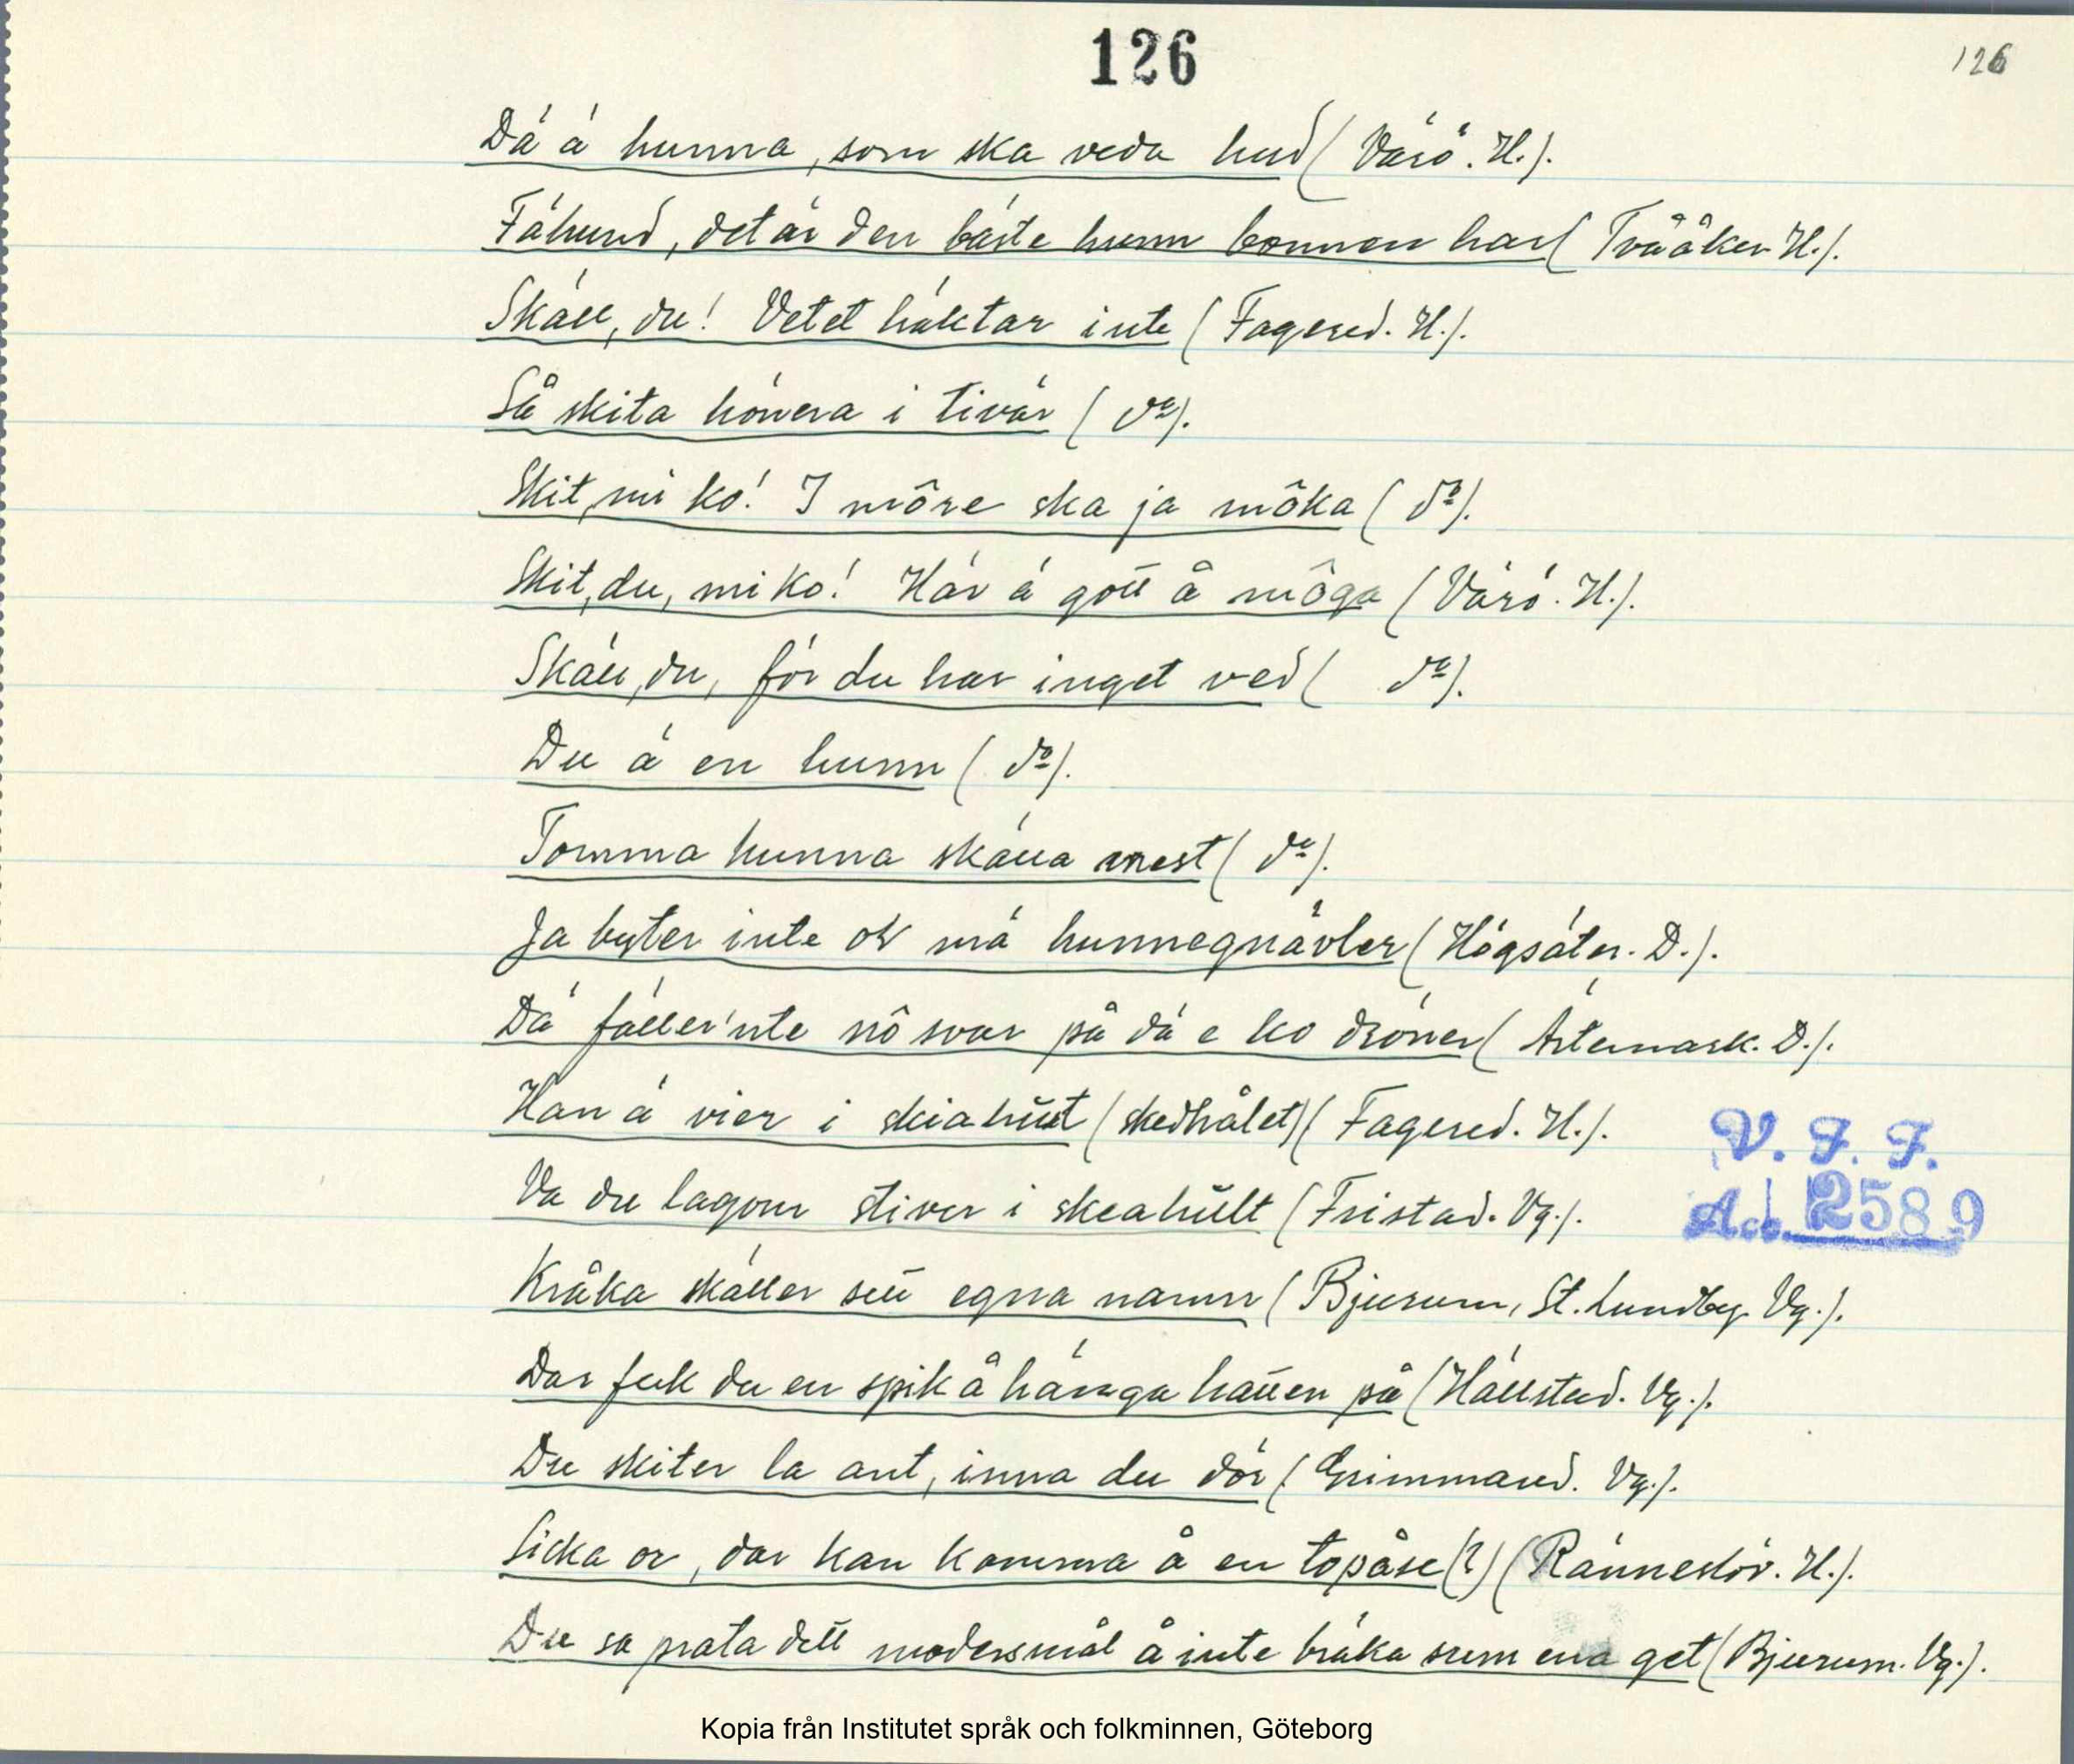 126
126
Dä ä hunna, som ska veda hud (Värö. H.).
Fähund, det är den bäste hunn bonnen har (Tvååker H.).
Skäll, du! Vetet häktar inte (Fagered. H.).
Så skita hönera i tivär (do).
Skit, mi ko! I môre ska ja môka (do).
Skit, du, mi ko! Här ä gott å môga (Värö. H.).
Skäll, du, för du har inget ved (do).
Du ä en hunn (do).
Tomma hunna skälla mest (do).
Ja byter inte ol mä hunnegnävler (Högsäter. D.).
Dä fäller'nte nô svar på dä e ko dröner (Ärtemark. D.).
Han ä vier i skiahult (skedhålet) (Fagered. H.).
Va du lagom stiver i skeahult (Fristad. Vg.).
Kråka skäller sitt egna namn (Bjurum, St. Lundby. Vg.).
Där feck du en spik å hänga hatten på (Hällstad. Vg.).
Du skiter la ant, inna du dör (Grimmared. Vg.).
Sicka or, där kan komma å en topåse (?) (Ränneslöv. H.).
Du sa prata ditt modersmål å inte bräka sum ena get (Bjurum. Vg.).
V. F. F.
Acc. 2589
Kopia från Institutet språk och folkminnen, Göteborg